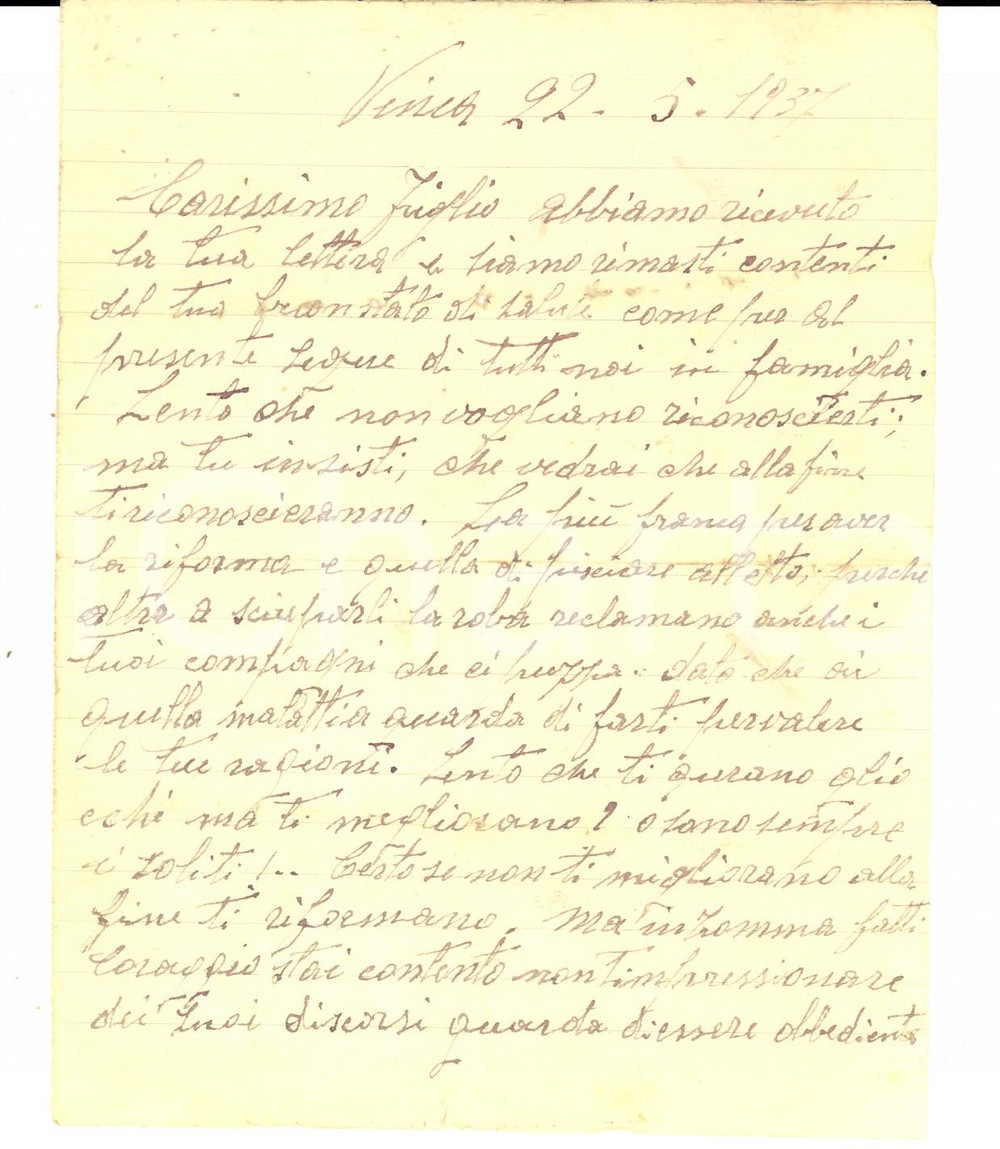 Vinca 22 - 5 - 1937
Carissimo figlio abbiamo ricevuto
la tua lettera e siamo rimasti contenti
del tuo buon stato di salute come pur al
presente segue di tutti noi in famiglia.
Sento che non vogliano riconoscierti;
ma tu insisti, che vedrai che alla fine
ti riconoscieranno. La più franca per aver
la riforma e quella di pisciare alletto, perche
oltre a sciuparli la roba reclamano anche i
tuoi compagni che ci puzza. dato che ài
quella malattia guarda di farti pervalere
le tue ragioni. Sento che ti qurano glio
cchi ma ti megliorano? o sono sempre
i soliti!.. Certo se non ti migliorano alla
fine ti riformano. Ma insomma fatti
Coraggio stai contento non timpressionare
dei tuoi discorsi guarda di essere obbediente